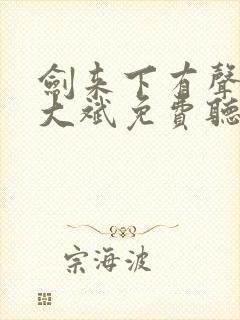 劍来下有聲
大斌免費聽
宗海波